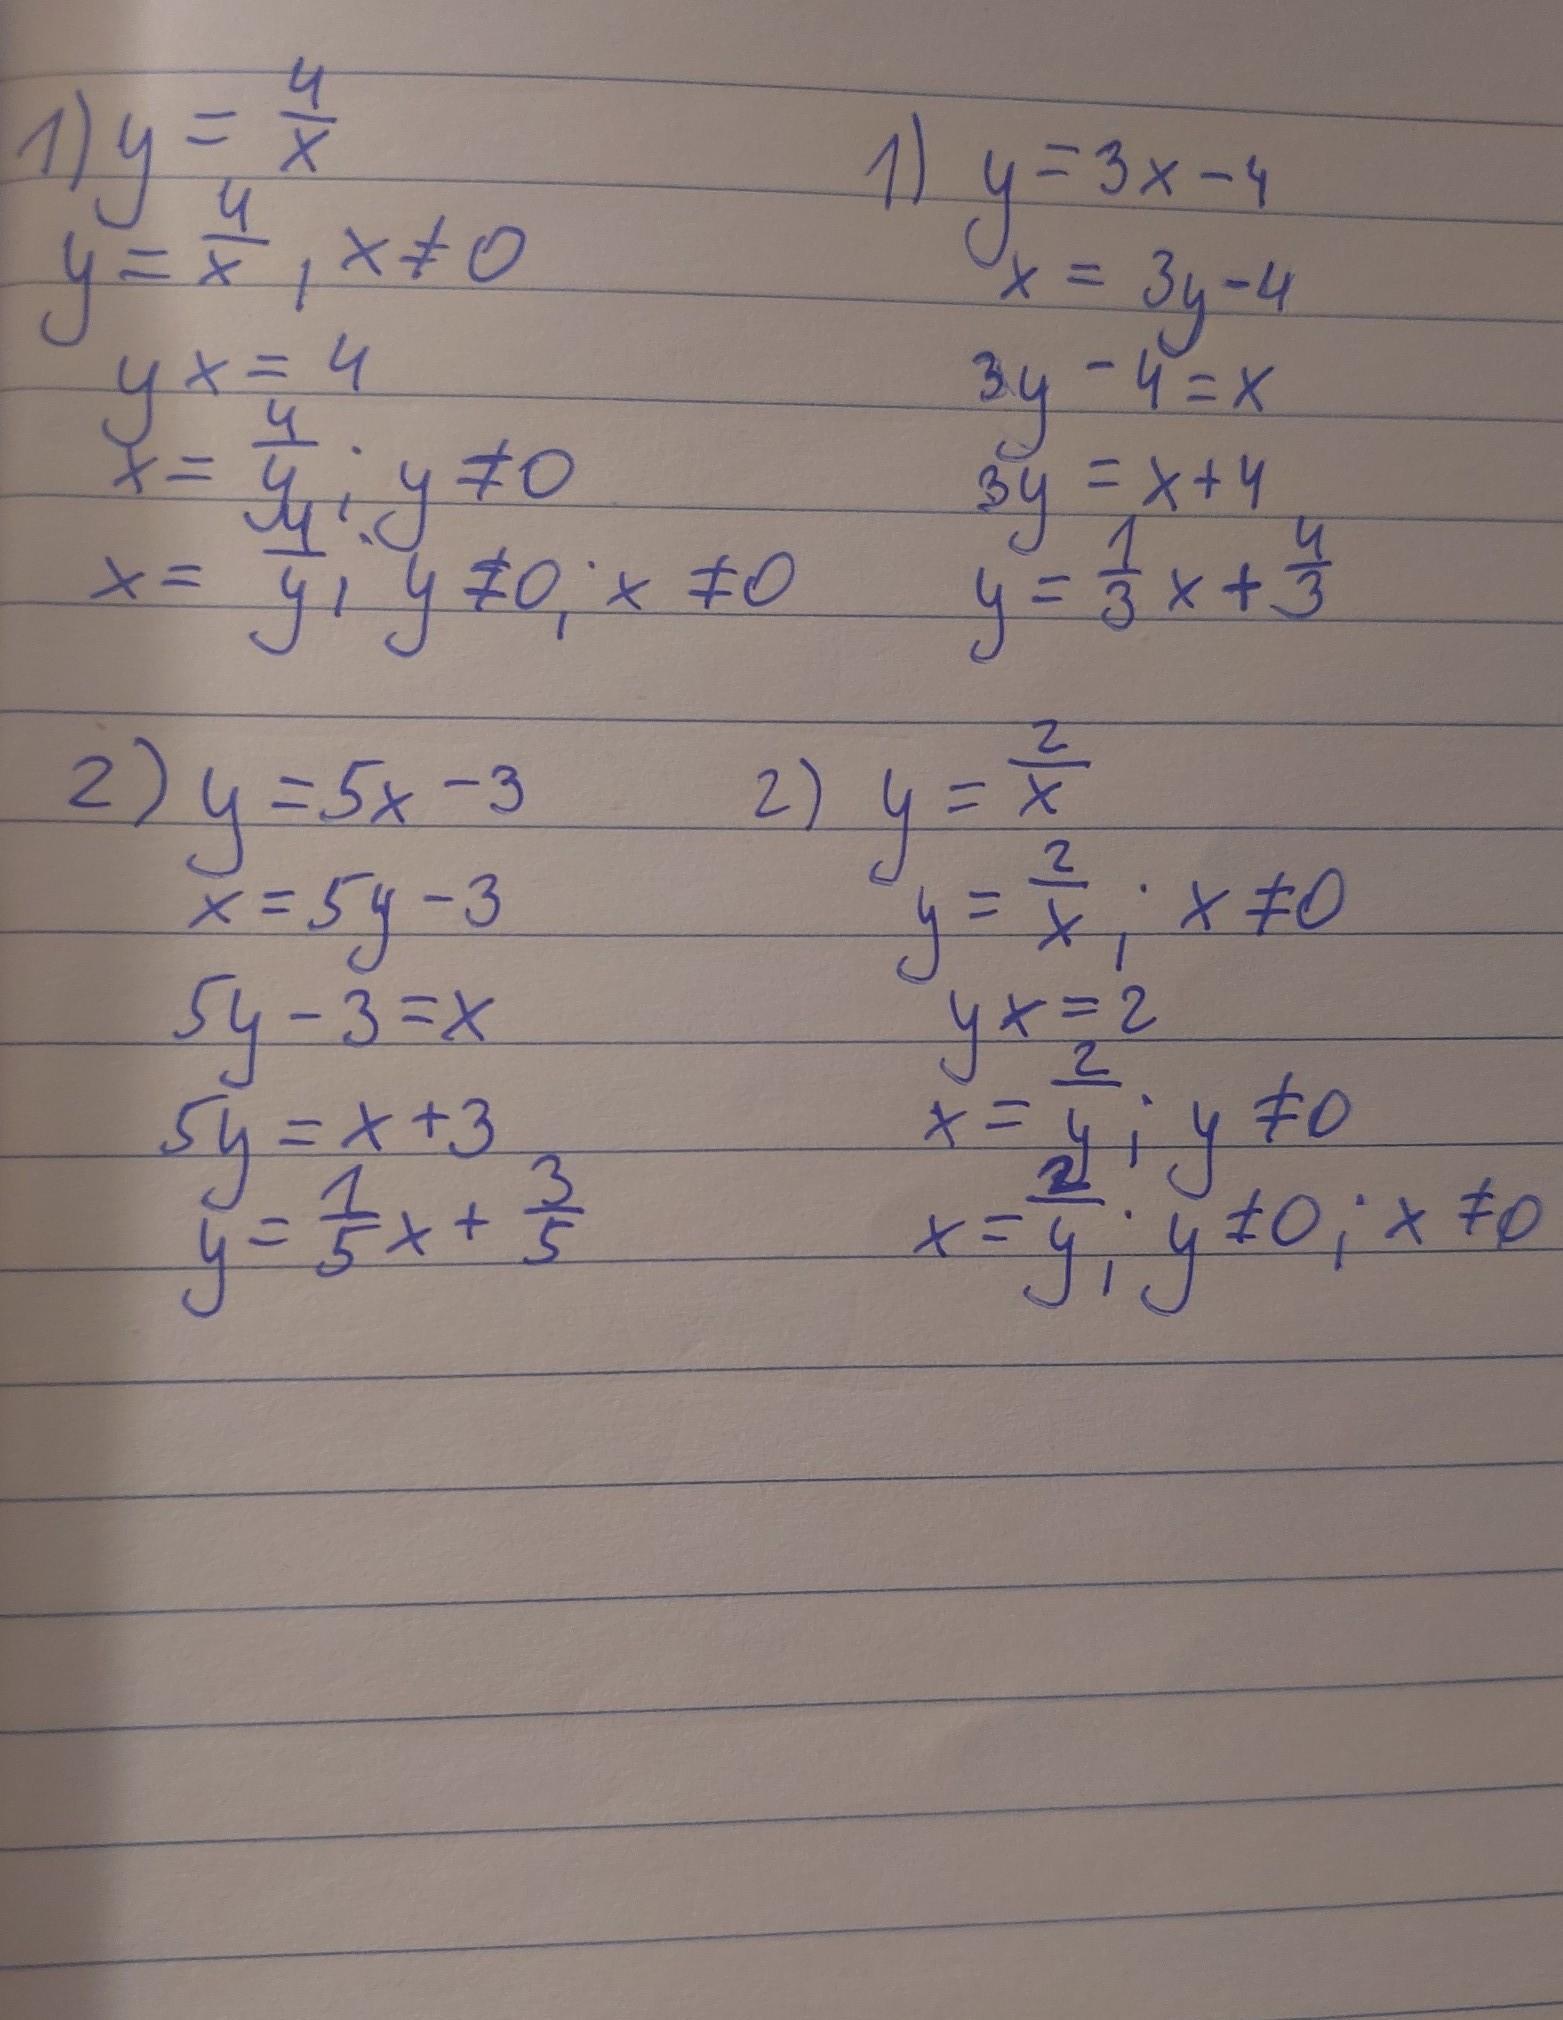 1) y = 4/x
y = 4/x , x ≠ 0
yx = 4
x = 4/y ; y ≠ 0
x = 4/y ; y ≠ 0 ; x ≠ 0
1) y = 3x - 4
x = 3y - 4
3y - 4 = x
3y = x + 4
y = 1/3 x + 4/3
2) y = 5x - 3
x = 5y - 3
5y - 3 = x
5y = x + 3
y = 1/5 x + 3/5
2) y = 2/x
y = 2/x ; x ≠ 0
yx = 2
x = 2/y ; y ≠ 0
x = 2/y ; y ≠ 0 ; x ≠ 0